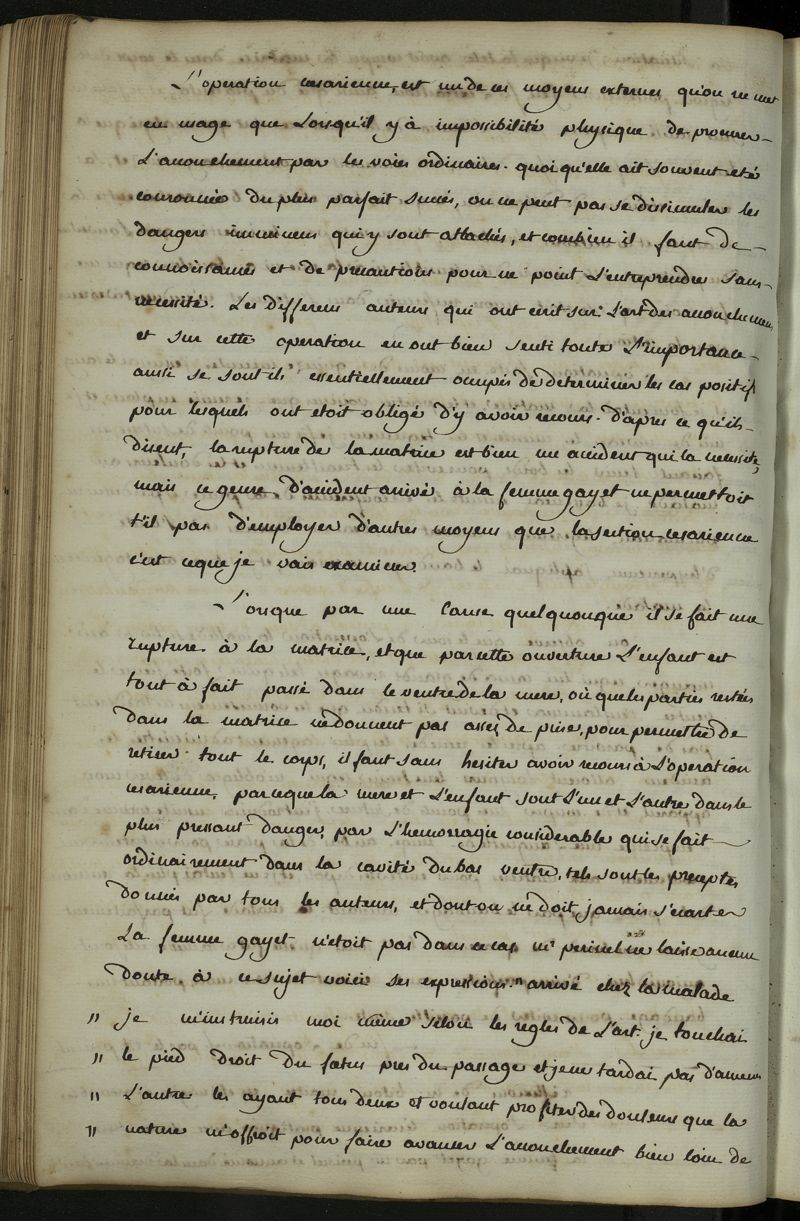 L'operation cesarienne, est un de ces moyens externes qu'on ne met
en usage que Lorsqu'il y à impossibilité physique de procurer
L'accouchement par les voies ordinaires. quoi qu'elle ait souvent eté
couronnée du plus parfait succés, on ne peut pas se dissimuler les
dangers imminens qui y sont attachés, et combien il faut de
connoissances et de precautions pour ne point L'entreprendre sans
necessité. Les differens auteurs qui ont ecrit sur L'art des accouchemens
et sur cette operation en ont bien senti toute L'importance
aussi se sont ils essentiellement occupés de determiner les cas positifs
pour lesquels ont etoit obligé d'y avoir recours. d'apres ce qu'ils
disent, la rupture de la matrice est bien un accident qui la necessite,
mais ce genre d'accident arrivé à la femme gayet ne permettoit
t'il pas d'employer d'autres moyens que la section cesarienne
c'est ce que je vais examiner.
Lorsque par une Cause quelquonque il se fait une
rupture à la matrice, et que par cette ouverture L'enfant est
tout à fait passé dans le ventre de la mere, où que les parties restées
dans la matrice ne donnent pas assez de prise, pour permettre de
retirer tout le corps, il faut sans hesiter avoir recours à L'operation
cesarienne, parceque la mere et L'enfant sont L'un et L'autre dans le
plus pressant danger, par L'hemorragie considerable qui se fait
ordinairement dans la cavité du bas ventre, tels sont les preceptes
donnés par tous les auteurs, et dont on ne doit jamais s'ecarter
La femme gayet n'etoit pas dans ce cas mr ne laisse aucun
doute à ce sujet voici ses expressions " arrivé chez la malade
" je m'instruisis moi même selon les regles de L'art. je touchai
" le pied droit du fœtus pres du passage et je ne tardai pas d'amener
" L'autre les ayant tous deux et voulant profiter des douleurs que la
" nature m'offroit pour faire avancer L'accouchement bien loin de